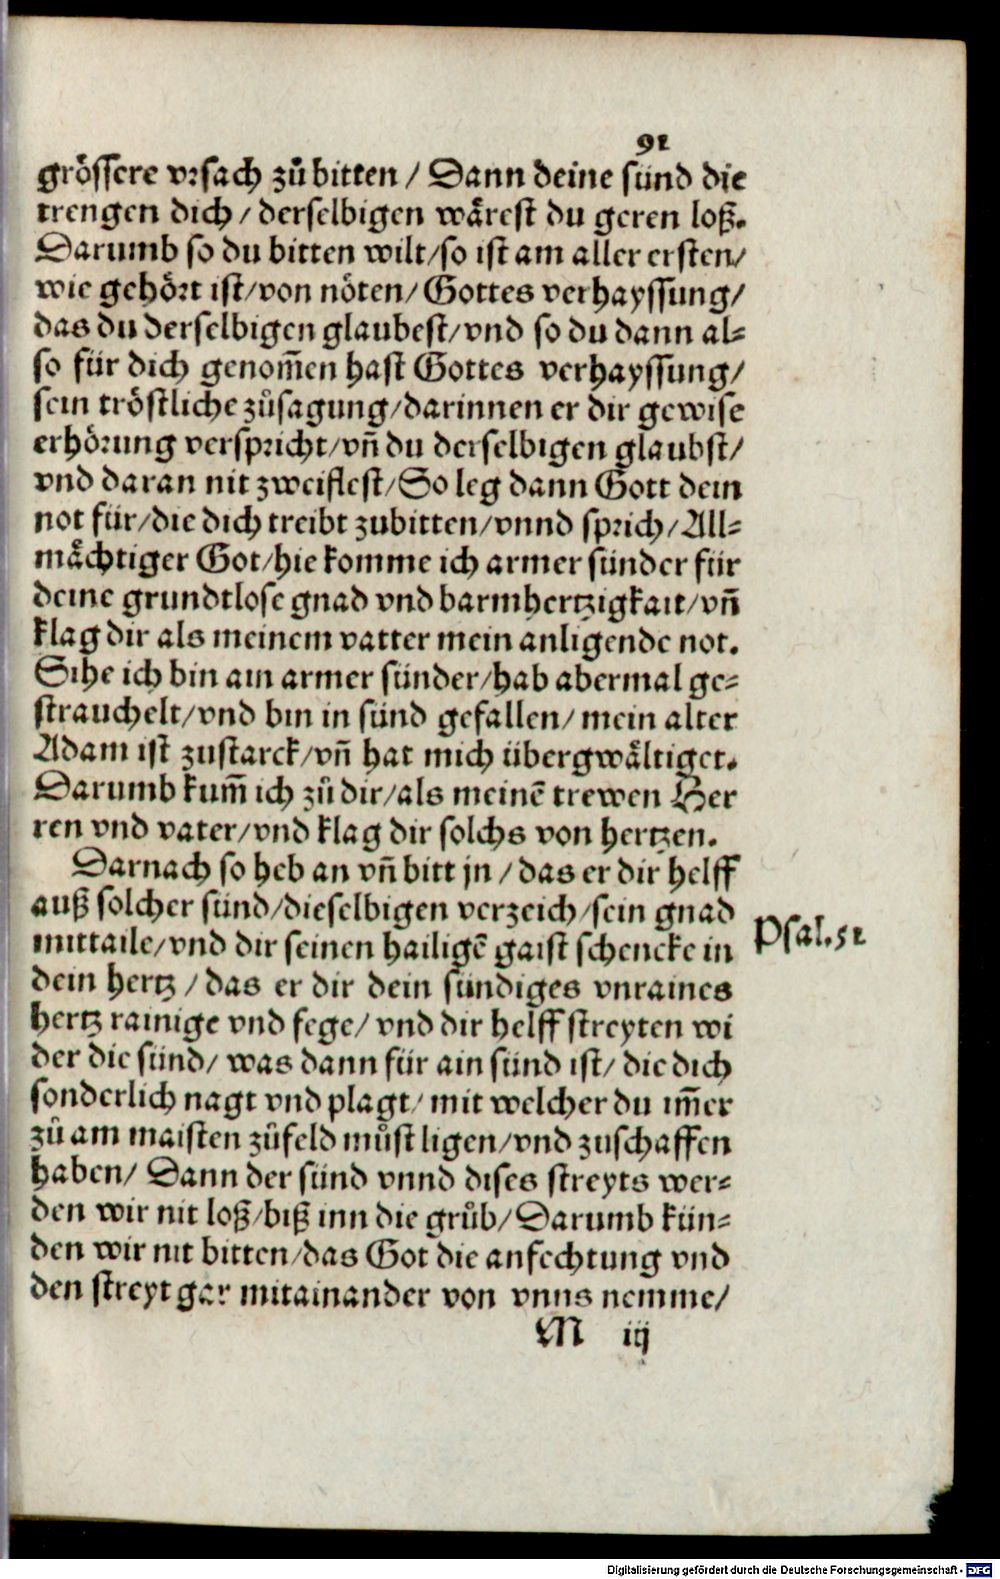 91
grössere vrsach zů bitten / Dann deine sünd die
trengen dich / derselbigen wärest du geren loß.
Darumb so du bitten wilt/so ist am aller ersten/
wie gehört ist/von nöten/ Gottes verhayssung/
das du derselbigen glaubest/vnd so du dann al=
so für dich genom̃en hast Gottes verhayssung/
sein tröstliche zůsagung/darinnen er dir gewise
erhörung verspricht/vñ du derselbigen glaubst/
vnd daran nit zweiflest/So leg dann Gott dein
not für/die dich treibt zubitten/vnnd sprich/All=
mächtiger Got/hie komme ich armer sünder für
deine grundtlose gnad vnd barmhertzigkait/vñ
klag dir als meinem vatter mein anligende not.
Sihe ich bin ain armer sünder/hab abermal ge=
strauchelt/vnd bin in sünd gefallen/ mein alter
Adam ist zustarck/vñ hat mich übergwältiget.
Darumb kum̃ ich zů dir/als meinẽ trewen Her
ren vnd vater/vnd klag dir solchs von hertzen.
Darnach so heb an vñ bitt jn / das er dir helff
auß solcher sünd/dieselbigen verzeich/sein gnad
mittaile/vnd dir seinen hailigẽ gaist schencke in
dein hertz / das er dir dein sündiges vnraines
hertz rainige vnd fege/ vnd dir helff streyten wi
der die sünd/ was dann für ain sünd ist/ die dich
sonderlich nagt vnd plagt/ mit welcher du im̃er
zů am maisten zůfeld můst ligen/vnd zuschaffen
haben/ Dann der sünd vnnd dises streyts wer=
den wir nit loß/biß inn die grůb/ Darumb kün=
den wir nit bitten/das Got die anfechtung vnd
den streyt gar mitainander von vnns nemme/
Psal.51
M iij
Digitalisierung gefördert durch die Deutsche Forschungsgemeinschaft - DFG